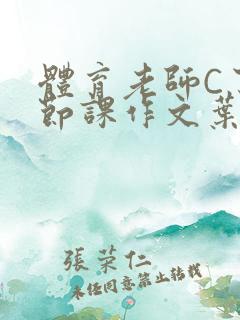 體育老師C了
節課作文葉
張榮仁
未經同意禁止轉載